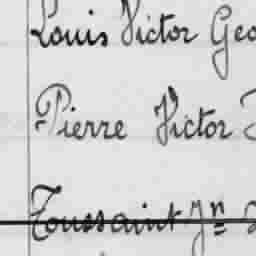 Louis Victor Geo
Pierre Victor
Toussaint Jn